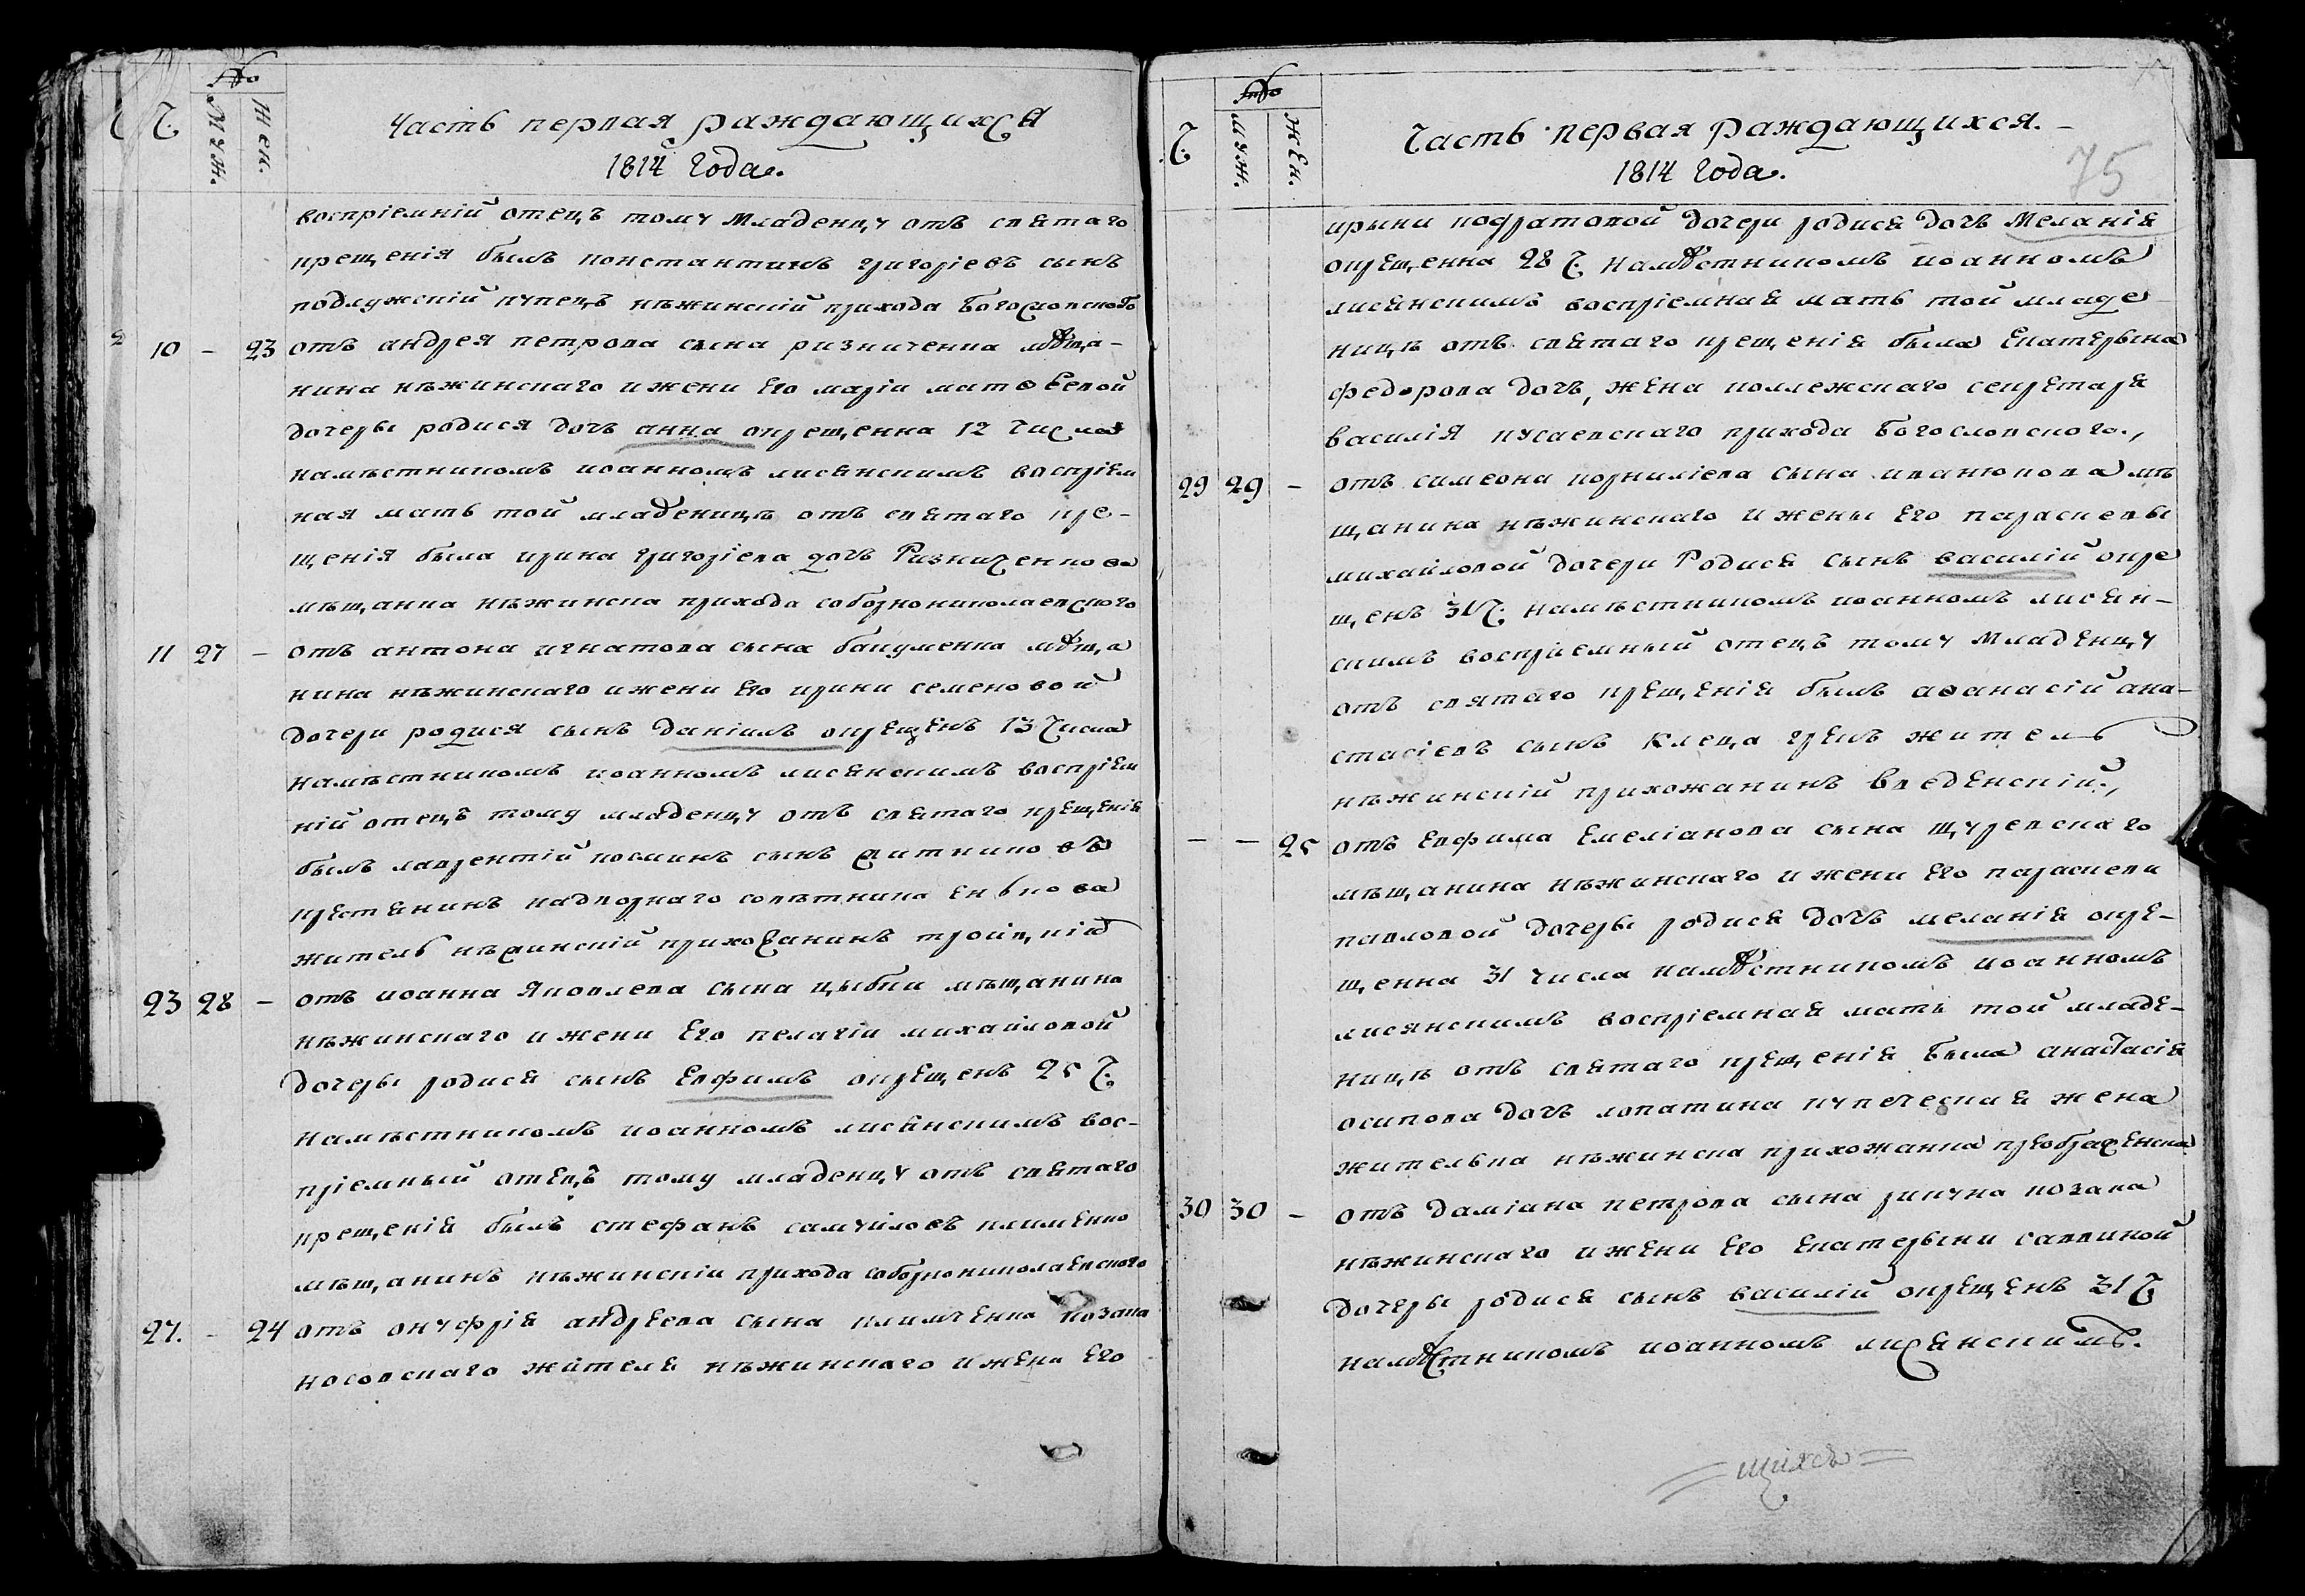 Ч.
Муж.
Жен.
Часть первая раждающихся
1814 года.
воспріемній отецъ тому младенцу отъ святаго
крещенія былъ константинъ григоріевъ сынъ
подлужскій купецъ нѣжинскій прихода Богословского
10 - 23 отъ андрея петрова сына ризниченка мѣща-
нина нѣжинскаго и жени его маріи матвеевой
дочеры родися дочъ анна окрещенна 12 числа
намѣстникомъ иоанномъ лисянскимъ воспріем
ная мать той младеницѣ отъ святаго кре-
щенія была ирина григоріева дочъ Ризниченкова
мѣщанка нѣжинска прихода соборнониколаевского
11 27 - отъ антона игнатова сына бакуменка мѣща
нина нѣжинскаго и жени его ирини семеновой
дочери родися сынъ даніилъ окрещенъ 13 числа
намѣстникомъ иоанномъ лисянскимъ воспріем
ній отецъ тому младенцу отъ святаго крещенія
былъ лаврентій косминъ сынъ житниковъ
крестянинъ надворнаго совѣтника
житель нѣжинскій прихожанинъ троицкій
23 28 - отъ иоанна яковлева сына цыбки мѣщанина
нѣжинскаго и жени его пелагіи михайловой
дочеры родися сынъ Евфимъ окрещенъ 25 Ч.
намѣстникомъ иоанномъ лисянскимъ вос-
пріемный отецъ тому младенцу отъ святаго
крещенія былъ стефанъ самуйловъ клименко
мѣщанинъ нѣжинскіи прихода соборнониколаевского
27. - 24 отъ онуфрія андреева сына климченка козака
носовскаго жителя нѣжинскаго и жени его
Ч.
муж.
жен.
Часть первая раждающихся.
1814 года.
75
ирыни кодратовой дочери родися дочъ Меланія
окрещенна 28 Ч. намѣстникомъ иоанномъ
лисянскимъ воспріемная мать той младе
ницѣ отъ святаго крещенія была Екатерына
федорова дочъ, жена коллежскаго секретаря
василія кусаевскаго прихода богословского.,
29 29 - отъ симеона корниліева сына иванюкова мѣ
щанина нѣжинскаго и жены его параскевы
михайловой дочери Родися сынъ василій окре
щенъ 31 Ч. намѣстникомъ иоанномъ лисян-
скимъ воспріемный отецъ тому младенцу
отъ святаго крещенія былъ аѳанасій ана-
стасіевъ сынъ Клеца грекъ житель
нѣжинскій прихожанинъ введенскій.,
- - 25 отъ Евфима Емеліанова сына щуревскаго
мѣщанина нѣжинскаго и жени его параскеви
павловой дочеры родися дочъ меланія окре-
щенна 31 числа намѣстникомъ иоанномъ
лисянскимъ воспріемная мать той младе-
ницѣ отъ святаго крещенія была анастасія
осипова дочъ лопатина купеческая жена
жителька нѣжинска прихожанка преображенска
30 30 - отъ даміана петрова сына рикуна козака
нѣжинскаго и жени его Екатерыни саввиной
дочеры родися сынъ василій окрещенъ 31 Ч.
намѣстникомъ иоанномъ лисянскимъ.
щихся